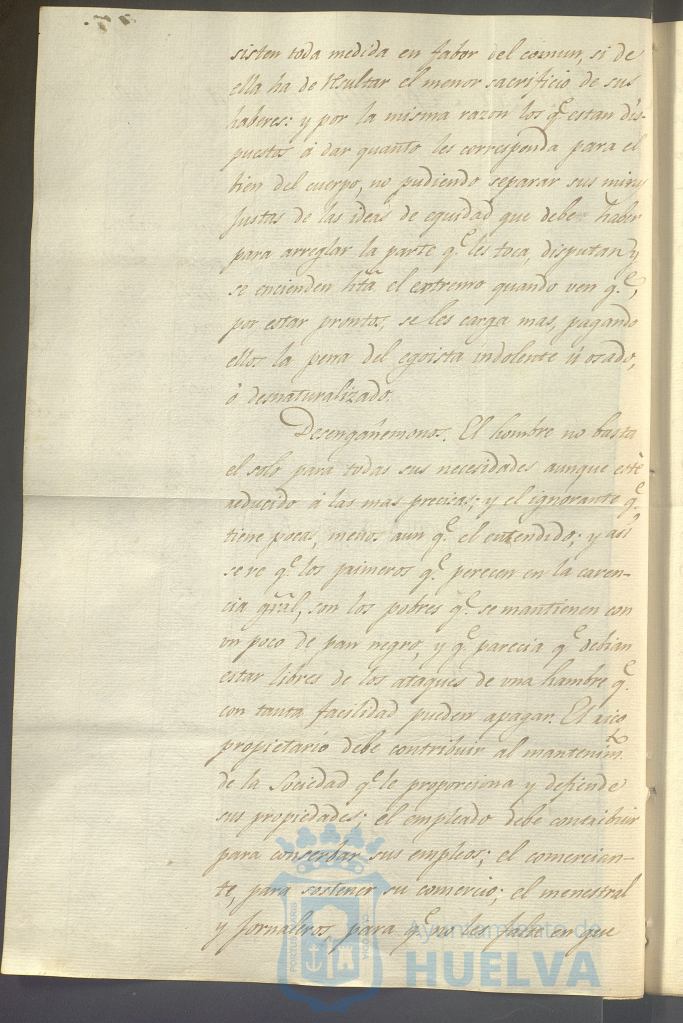 sisten toda medida en fabor del comun, si de
ella ha de resultar el menor sacrificio de sus
haberes: y por la misma razon los q.e estan dis-
puestos á dar quanto les corresponda para el
bien del cuerpo, no pudiendo separar sus miras
justas de las ideas de equidad que deben haber
para arreglar la parte q.e les toca, disputan y
se encienden hta el extremo quando ven q.e,
por estar prontos, se les carga mas, pagando
ellos la pena del egoista indolente ú osado,
ó desnaturalizado.
Desengañemonos. El hombre no basta
el solo para todas sus necesidades aunque esté
reducido á las mas precisas; y el ignorante q.e
tiene pocas, menos aun q.e el entendido; y asi
se ve q.e los primeros q.e perecen en la caren-
cia gral, son los pobres q.e se mantienen con
un poco de pan negro, y q.e parecia q.e debian
estar libres de los ataques de una hambre q.e
con tanta facilidad pueden apagar. El rico
propietario debe contribuir al mantenim.to
de la Sociedad q.e le proporciona y defiende
sus propiedades; el empleado debe contribuir
para conserbar sus empleos; el comercian-
te, para sostener su comercio; el menestral
y jornaleros, para q.e no les falte en que
Ayuntamiento de
HUELVA